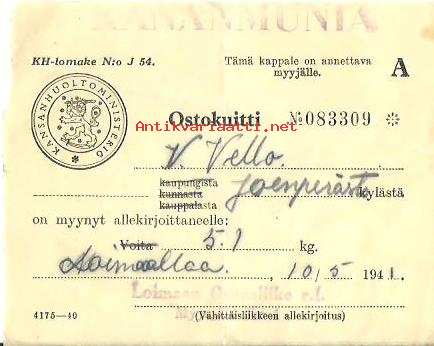 KANANMUNIA
KH-lomake N:o J 54.
Tämä kappale on annettava
myyjälle.
A
KANSANHUOLTOMINISTERIÖ
Ostokuitti №083309 *
Antikvariaatti.net
V. Vello.
kaupungista
kunnasta Joenperästä kylästä
kauppalasta
on myynyt allekirjoittaneelle:
Voita 5.1 kg.
Loimaallaa. 10/5 1941.
Loimaan r.l.
4175—40 (Vähittäisliikkeen allekirjoitus)